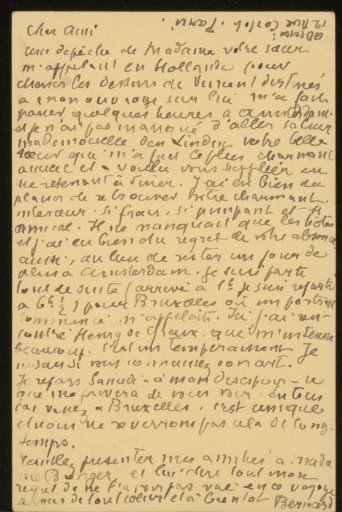 adresse
12 Rue Cortot. Paris.
Cher Ami
une dépêche de Madame votre sœur
m'appelant en Hollande pour
choisir les dessins de Vincent destinés
à mon ouvrage sur lui m'a fait
passer quelques heures à Amsterdam
et je n'ai pas manqué d'aller saluer
Mademoiselle den Linden votre belle
sœur qui m'a fait le plus charmant
accueil et a voulu vous suppléer en
me retenant à diner. J'ai eu bien du
plaisir de retrouver votre charmant
intérieur si frais, si pimpant et si
amical. Il ne manquait que les hôtes
et j'ai eu bien du regret de votre absence
aussi, au lieu de rester un jour de
plus à Amsterdam. je suis parti
tout de suite (arrivé à 1h je suis reparti
à 6h ½) pour Bruxelles où un portrait
commencé m'appelait. J'ai ren-
contré Henry de Groux. qui m'intéresse
beaucoup. C'est un tempérament. Je
ne sais si vous connaissez son art.
Je repars Samedi à mon
que me privera de vous voir. en tous
cas venez à Bruxelles. c'est unique
et nous ne reverrons pas cela de long-
temps.
Veuillez présenter mes amitiés à Mada
me Bonger et lui dire tout mon
regret de ne l'avoir pas vue en ce voyage
à vous de tout cœur et à bientôt Bernard